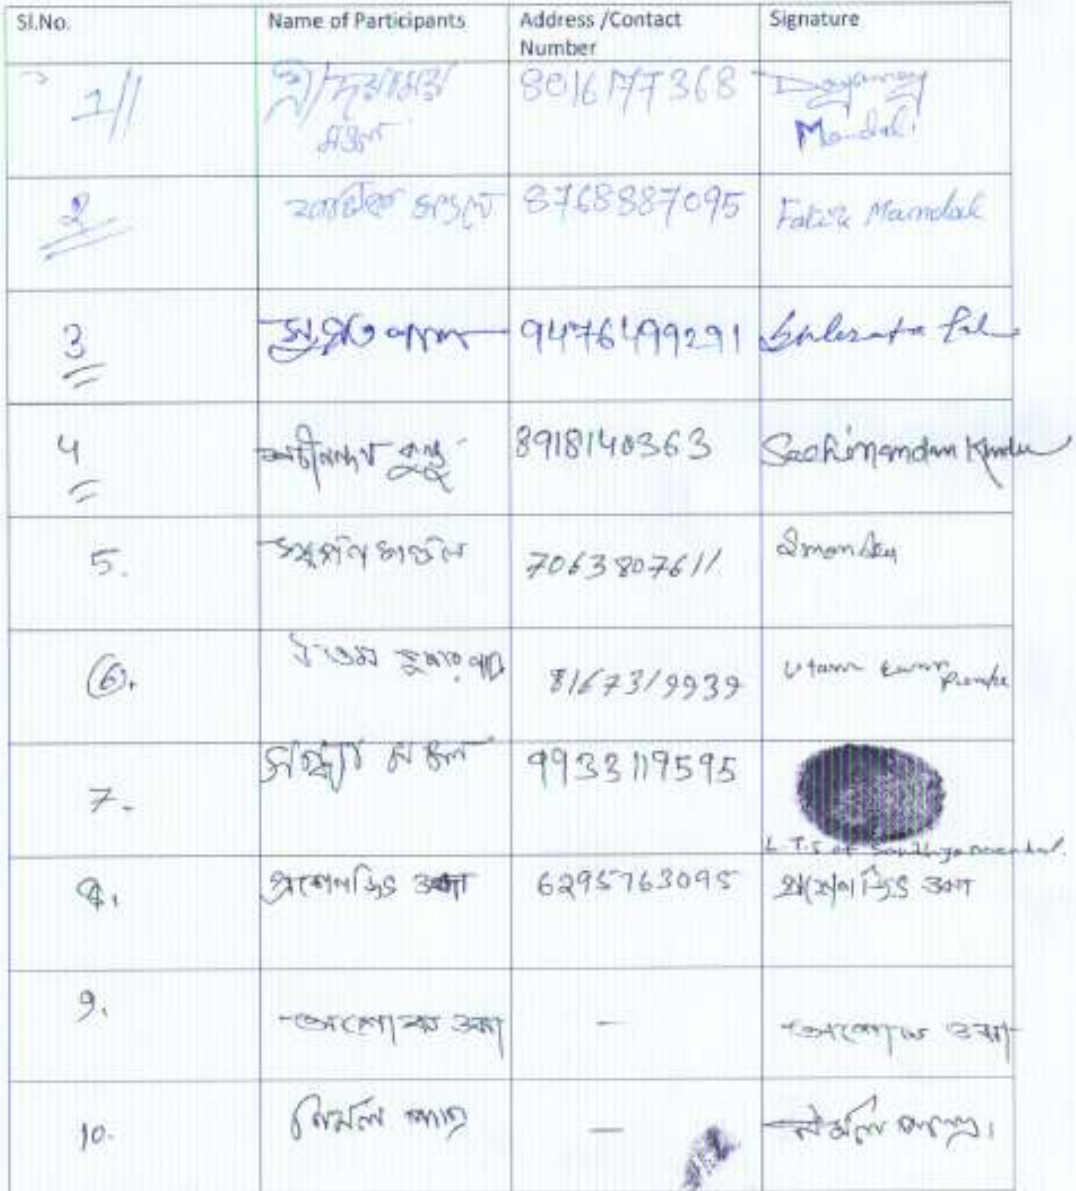 Sl.No. Name of Participants Address /Contact Number Signature
1 শ্রী দয়াময় মণ্ডল 8016177368 Dayamay Mondal
2 ফটিক মণ্ডল 8768887095 Fatik Mandal
3 সুব্রত পাল 9476499291 Subrata Pal
4 শচীনন্দন কুন্ডু 8918140363 Sachinandan Kundu
5. মণ্ডল 7063807611
6. উত্তম কুমার 8167319939 Utam
7. সন্ধ্যা মণ্ডল 9933119595
L.T.I of Sandhya Mandal.
8. প্রসেনজিৎ ওঝা 6295763095 প্রসেনজিৎ ওঝা
9. অশোক ওঝা — অশোক ওঝা
10. নির্মল পাত্র — নির্মল পাত্র।